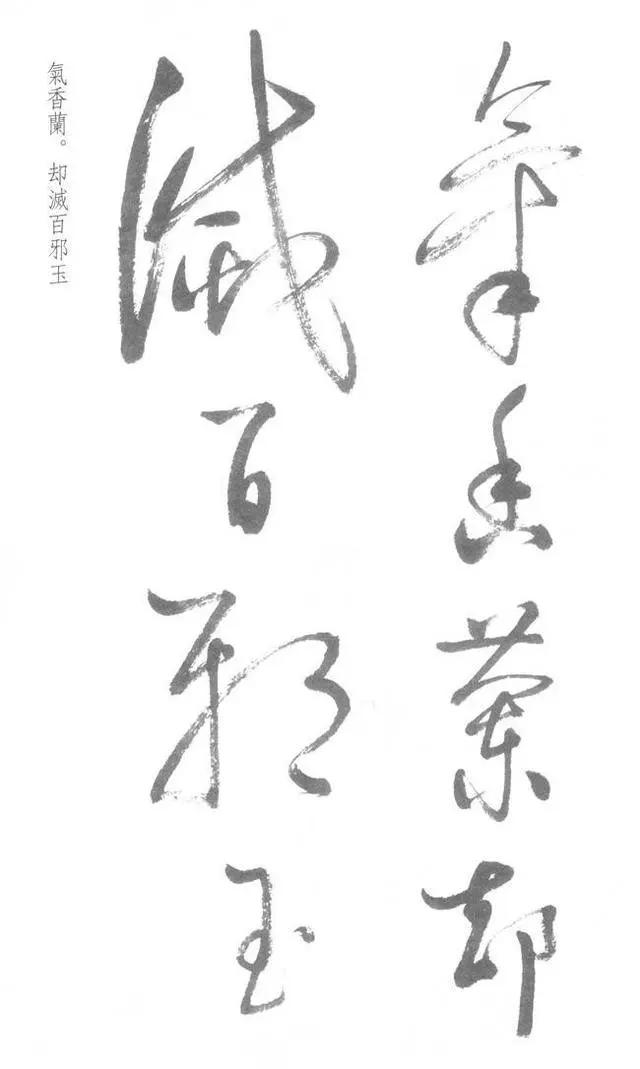 氣香蘭却
滅百邪玉
氣香蘭。却滅百邪玉